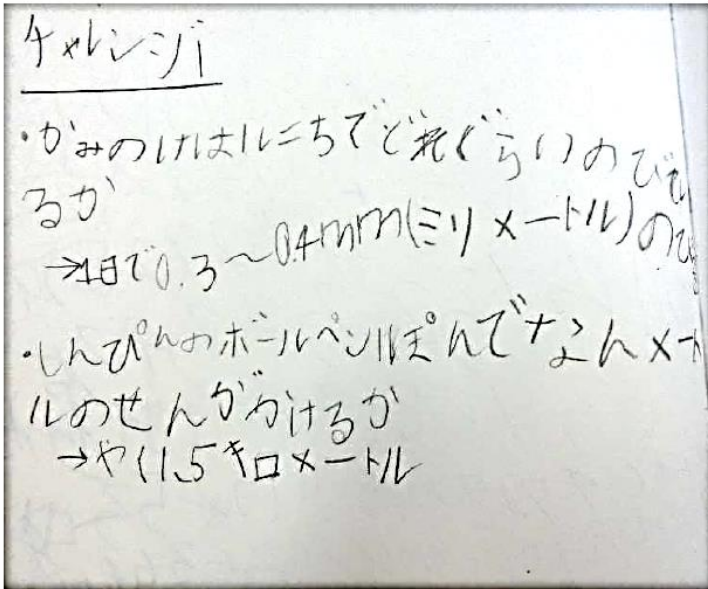 チャレンジ1
・かみのけは1にちでどれぐらいのびて
るか
→1日で0.3～0.4mm(ミリメートル)のび
・しんぴんのボールペン1ぽんでなんメート
ルのせんががけるか
→やく1.5キロメートル